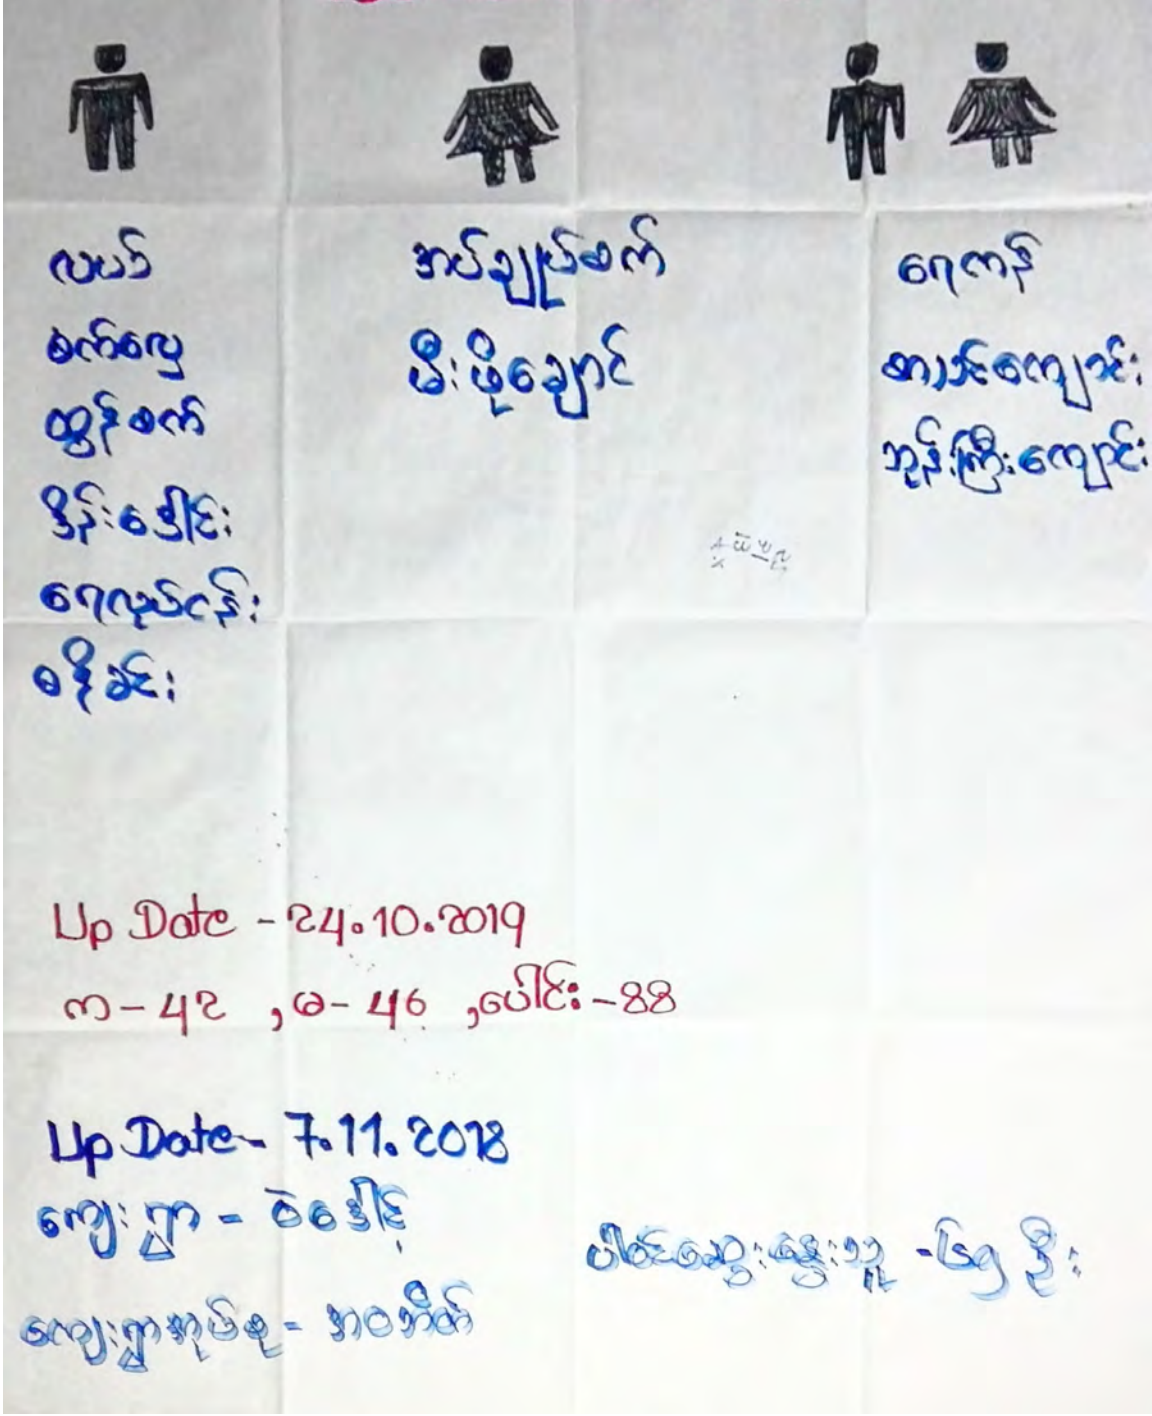 လယ်
စက်လှေ
ထွန်စက်
ဒိုန်းဒေါင်း
ရေလုပ်ငန်း
စနိုခင်း
အပ်ချုပ်စက်
မီးဖိုချောင်
ရေကန်
စာသင်ကျောင်း
ဘုန်းကြီးကျောင်း
Up Date - 24.10.2019
က - 42 , မ - 46 , ပေါင်း - 88
Up Date - 7.11.2018
ကျေးရွာ - ဝဲဒေါင့်
ကျေးရွာအုပ်စု - အစဘိတ်
ပါဝင်ဆွေးနွေးသူ - ၆၅ ဦး